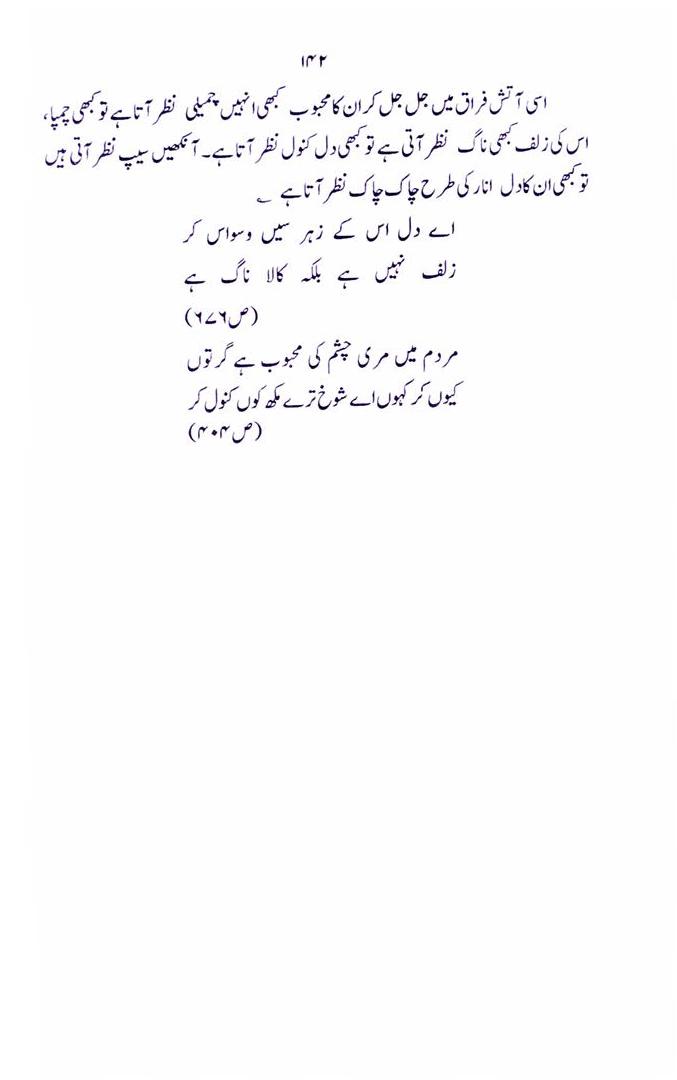 ۱۴۲
اسی آتش فراق میں جل جل کر ان کا محبوب کبھی انہیں چمیلی نظر آتا ہے تو کبھی چمپا،
اس کی زلف کبھی ناگ نظر آتی ہے تو کبھی دل کنول نظر آتا ہے۔ آنکھیں سیپ نظر آتی ہیں
تو کبھی ان کا دل انار کی طرح چاک چاک نظر آتا ہے ؎
اے دل اس کے زہر سیں وسواس کر
زلف نہیں ہے بلکہ کالا ناگ ہے
(ص۶۷۶)
مردم میں مری چشم کی محبوب ہے گر توں
کیوں کر کہوں اے شوخ ترے مکھ کوں کنول کر
(ص۴۰۴)